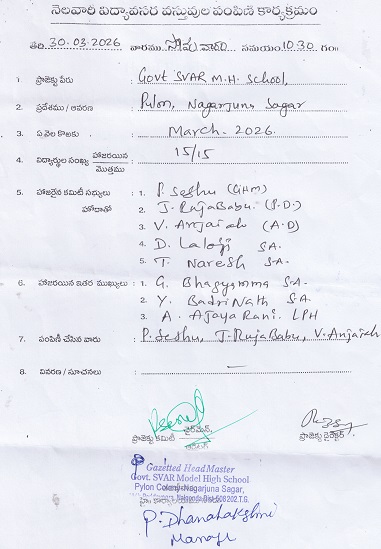 నెలవారీ విద్యావసర వస్తువుల పంపిణి కార్యక్రమం
తేది. 30-03-2026 వారము. సోమవారం. సమయం 10.30 గం॥
1. ప్రాజెక్టు పేరు : Govt SVAR M.H. School,
2. ప్రదేశము / ఆవరణ : Pylon, Nagarjuna Sagar
3. ఏ నెల కొఱకు : March-2026.
4. విద్యార్థుల సంఖ్య హాజరయిన / మొత్తము : 15/15
5. హాజరైన కమిటీ సభ్యులు హోదాతో : 1. P. Seshu (GHM)
2. J. RajaBabu. (P.D.)
3. V. Anjaiah (A.D)
4. D. Laloji S.A.
5. T. Naresh S.A.
6. హాజరయిన ఇతర ముఖ్యులు : 1. G. Bhagyamma S.A.
2. Y. BadriNath S.A.
3. A. AjayaRani. LPH
7. పంపిణి చేసిన వారు : P. Seshu, J. RajaBabu, V. Anjaiah
8. వివరణ / సూచనలు : —
ప్రాజెక్టు కమిటీ చైర్‌మేన్,
ప్రాజెక్టు డైరెక్టర్.
Gazetted Head Master
Govt. SVAR Model High School
Pylon Colony, Nagarjuna Sagar,
Nalgonda Dist-508202.T.G.
P. Dhanalakshmi